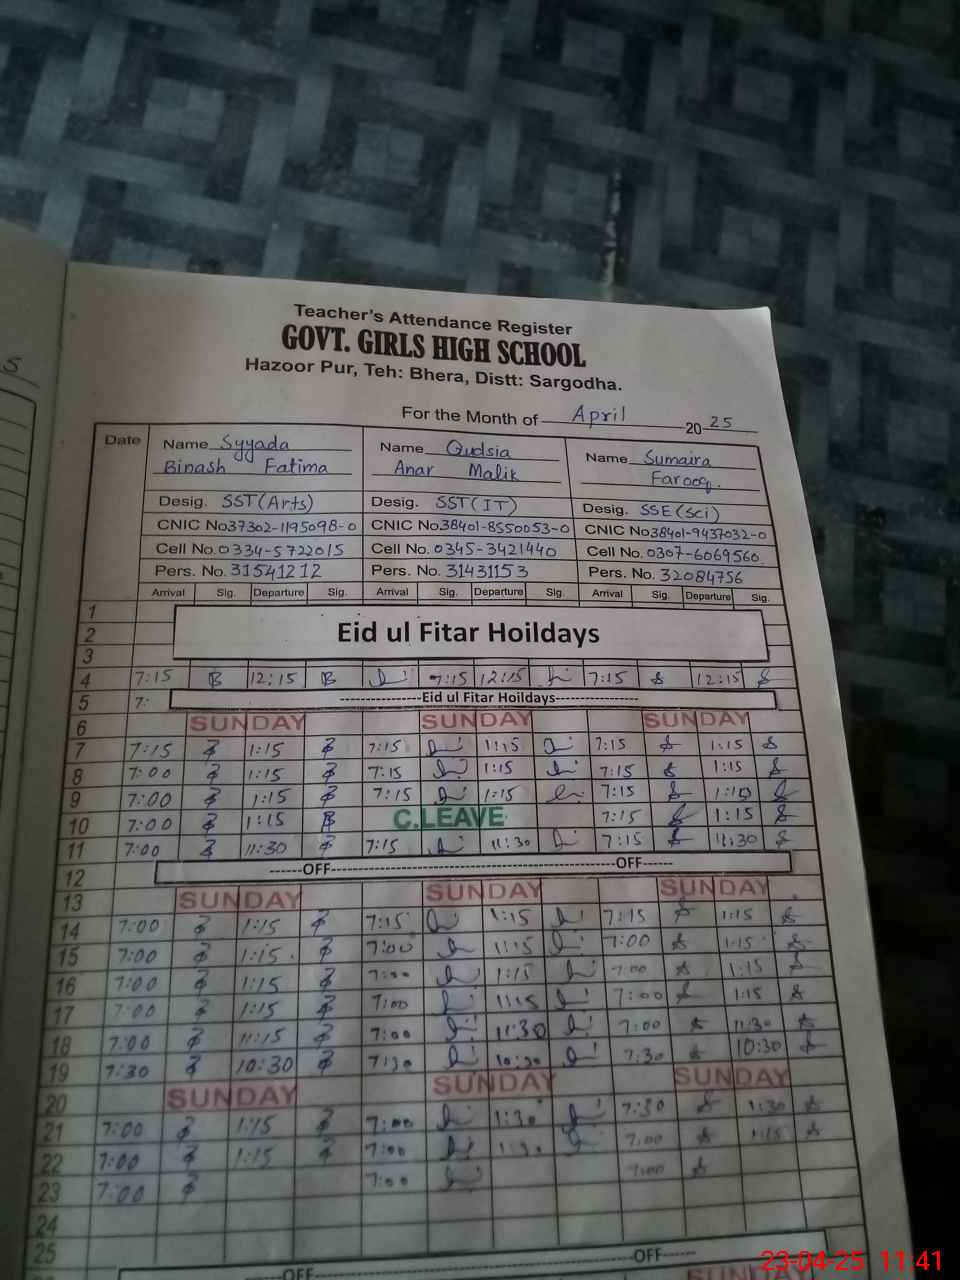 5
Teacher's Attendance Register
GOVT. GIRLS HIGH SCHOOL
Hazoor Pur, Teh: Bhera, Distt: Sargodha.
For the Month of April 2025
Date Name Syyada Name Qudsia Name Sumaira
Binash Fatima Anar Malik Farooq.
Desig. SST(Arts) Desig. SST(IT) Desig. SSE(Sci)
CNIC No37302-1195098-0 CNIC No.38401-8550053-0 CNIC No38401-9437032-0
Cell No.0334-5722015 Cell No.0345-3421440 Cell No.0307-6069560
Pers. No.31541212 Pers. No.31431153 Pers. No.32084756
Arrival Sig. Departure Sig. Arrival Sig. Departure Sig. Arrival Sig. Departure Sig.
1
2 Eid ul Fitar Hoildays
3
4 7:15 12:15 7:15 12:15 7:15 12:15
5 7: ----------------Eid ul Fitar Hoildays----------------
6 SUNDAY SUNDAY SUNDAY
7 7:15 1:15 7:15 1:15 7:15 1:15
8 7:00 1:15 7:15 1:15 7:15 1:15
9 7:00 1:15 7:15 1:15 7:15
10 7:00 1:15 C.LEAVE 7:15 1:15
11 7:00 11:30 7:15 11:30 7:15 11:30
12 ------OFF------ ------OFF------
13 SUNDAY SUNDAY SUNDAY
14 7:00 1:15 7:15 1:15 7:15 1:15
15 7:00 1:15 7:00 1:15 7:00 1:15
16 7:00 1:15 7:00 1:15 7:00 1:15
17 7:00 1:15 7:00 1:15 7:00 1:15
18 7:00 11:15 7:00 11:30 7:00 11:30
19 7:30 10:30 7:30 10:30 7:30 10:30
20 SUNDAY SUNDAY SUNDAY
21 7:00 1:15 7:00 1:30 7:30 1:30
22 7:00 1:15 7:00 1:30 7:00 1:15
23 7:00 7:00 7:00
24
25
------OFF------ ------OFF------
SUNDAY
23-04-25 11:41